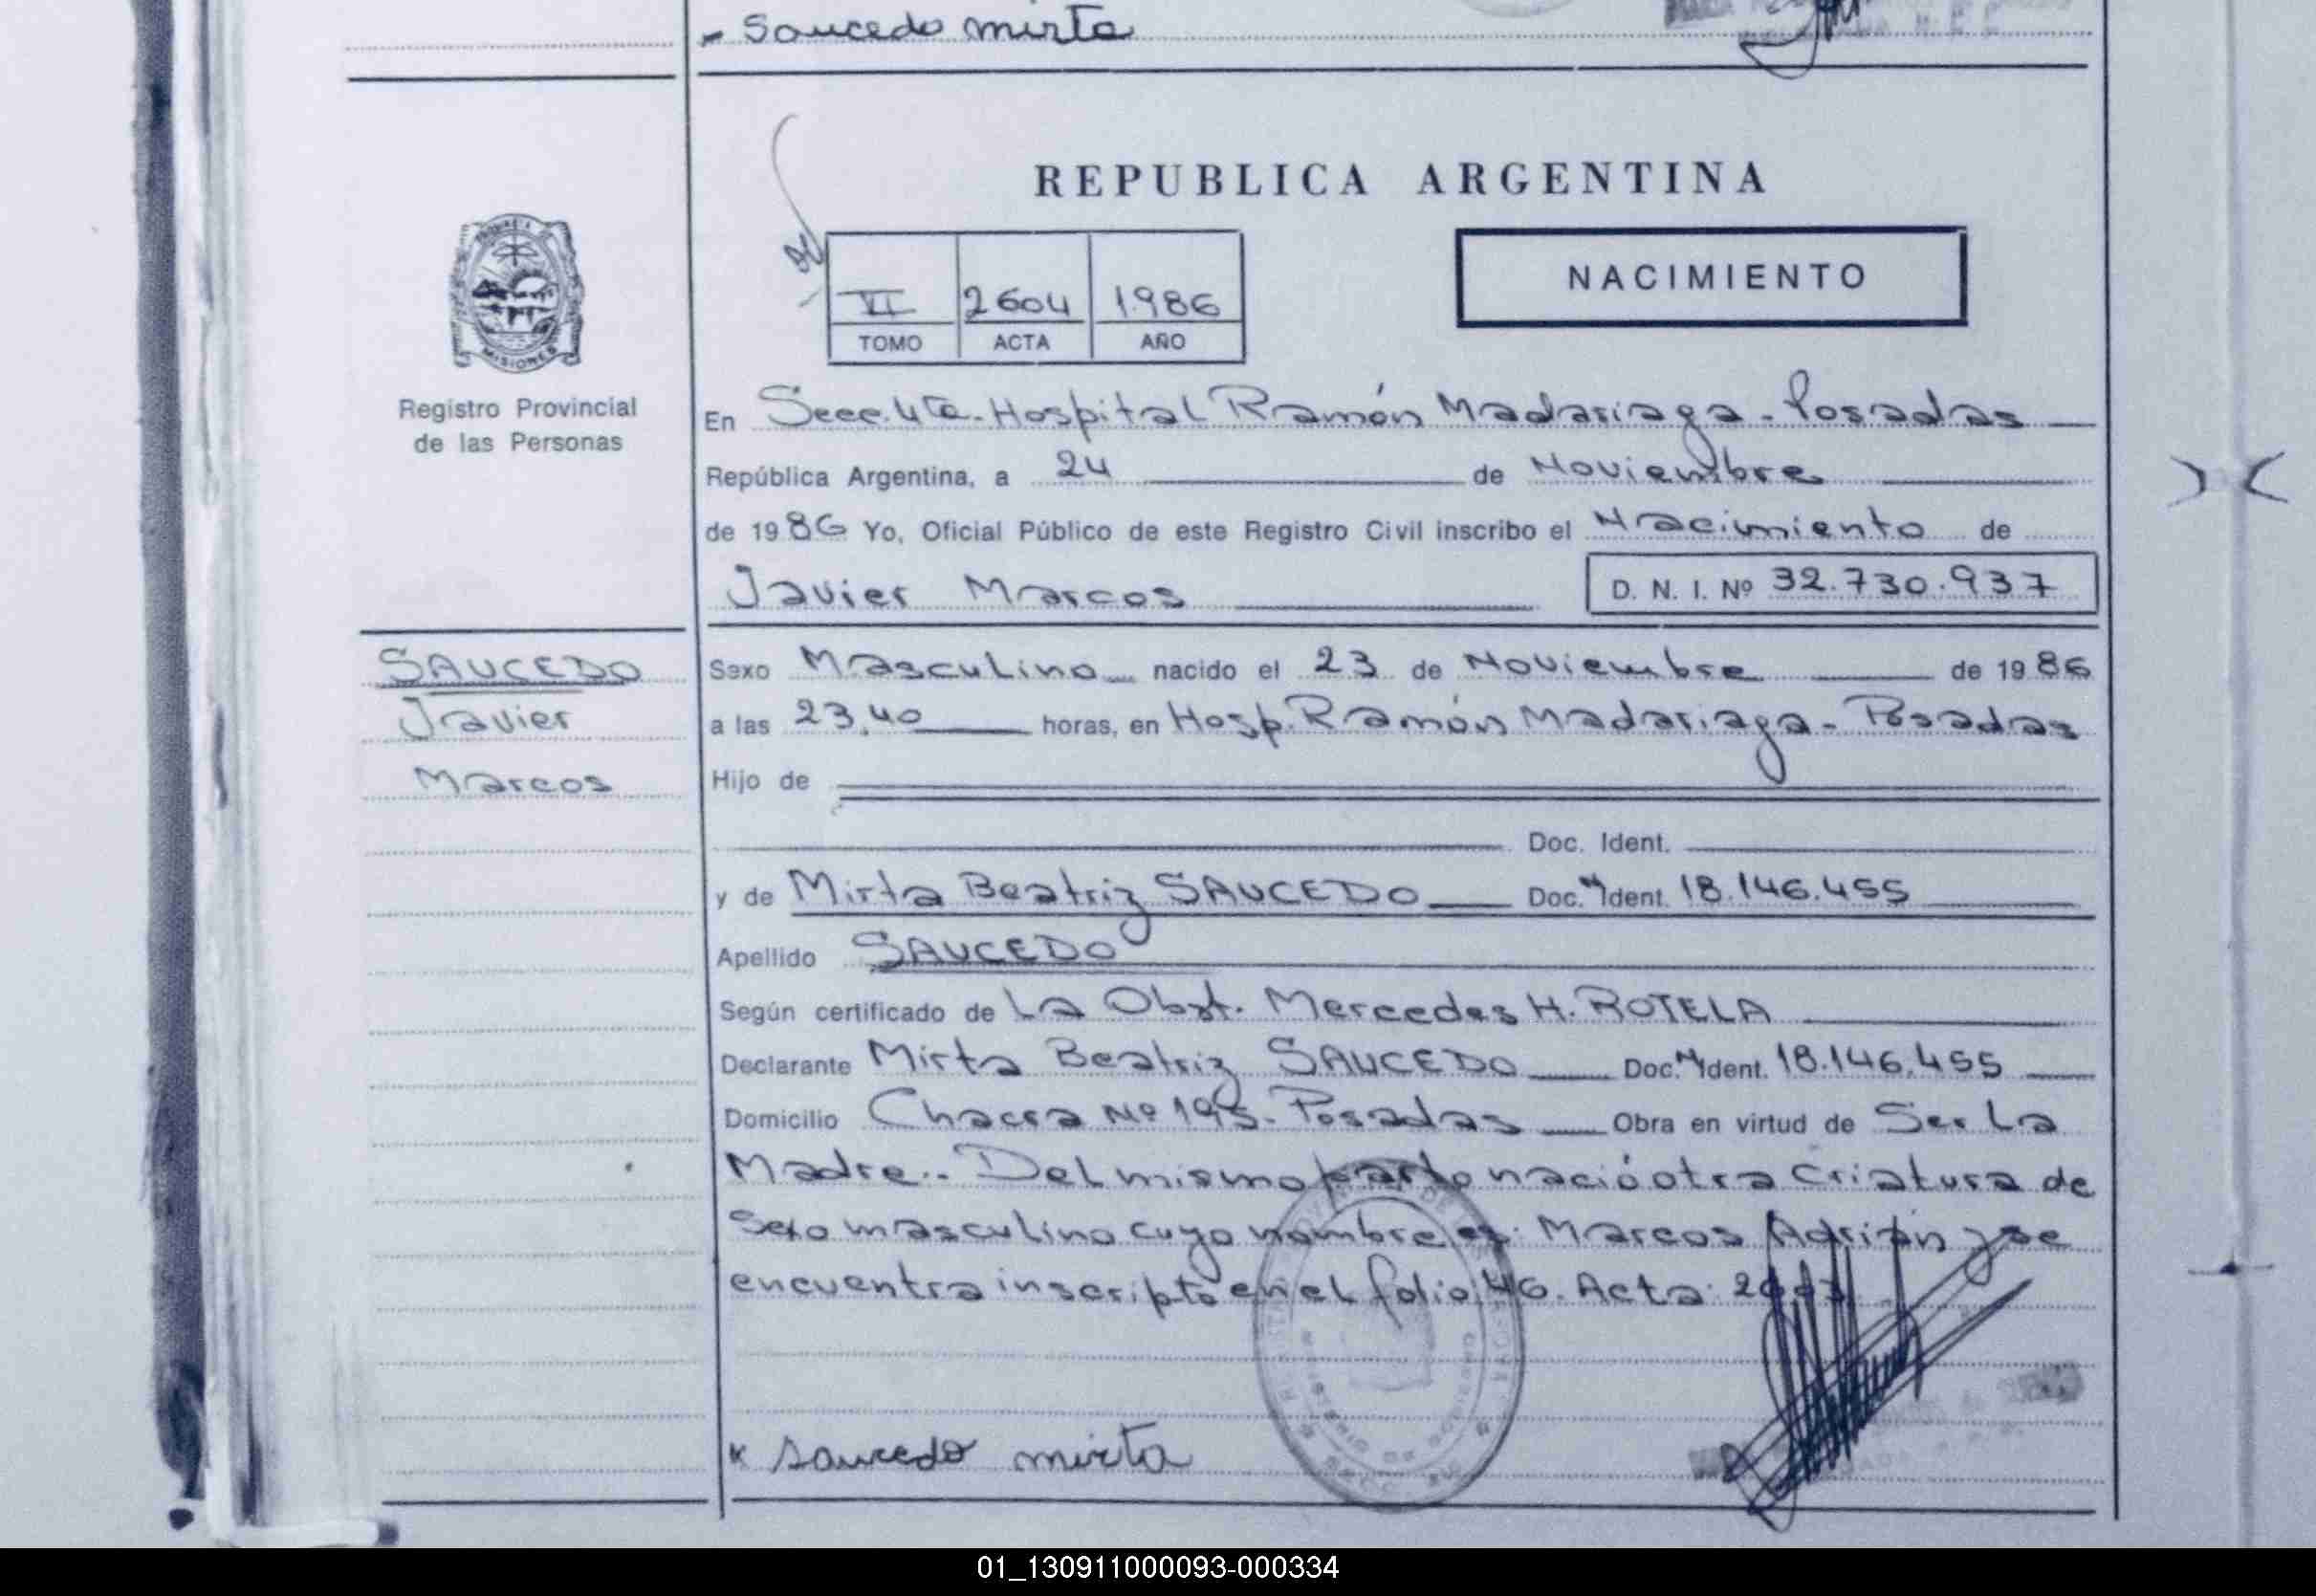 - Saucedo mirta
REPUBLICA ARGENTINA
NACIMIENTO
VI 2604 1986
TOMO ACTA AÑO
MISIONES
Registro Provincial
de las Personas
En Secc. 4ta - Hospital Ramón Madariaga - Posadas
República Argentina, a 24 de Noviembre
de 1986 Yo, Oficial Público de este Registro Civil inscribo el Nacimiento de
Javier Marcos D. N. I. Nº 32.730.937
SAUCEDO
Javier
Marcos
Sexo Masculino nacido el 23 de Noviembre de 1986
a las 23,40 horas, en Hosp. Ramón Madariaga - Posadas
Hijo de
Doc. Ident.
y de Mirta Beatriz SAUCEDO Doc. Ident. 18.146.455
Apellido SAUCEDO
Según certificado de La Obst. Mercedes H. ROTELA
Declarante Mirta Beatriz SAUCEDO Doc. Ident. 18.146.455
Domicilio Chacra Nº 195 - Posadas Obra en virtud de Ser La
Madre.. Del mismo parto nació otra Criatura de
Sexo masculino cuyo nombre es: Marcos Adrián y se
encuentra inscripto en el folio 46. Acta:
x Saucedo mirta
01_130911000093-000334